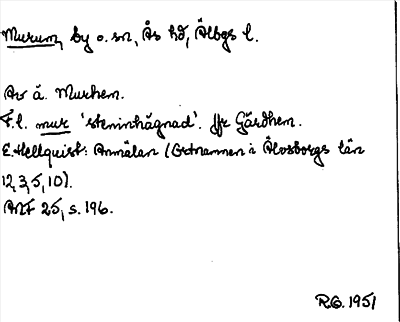 Murum, by o. sn, Ås hd, Älbgs l.
Av ä. Murhem.
F.l. mur 'steninhägnad'. Jfr Gärdhem.
E. Hellquist: Anmälan (Ortnamnen i Älvsborgs län
12, 3, 5, 10).
ANF 25, s. 196.
R.G. 1951